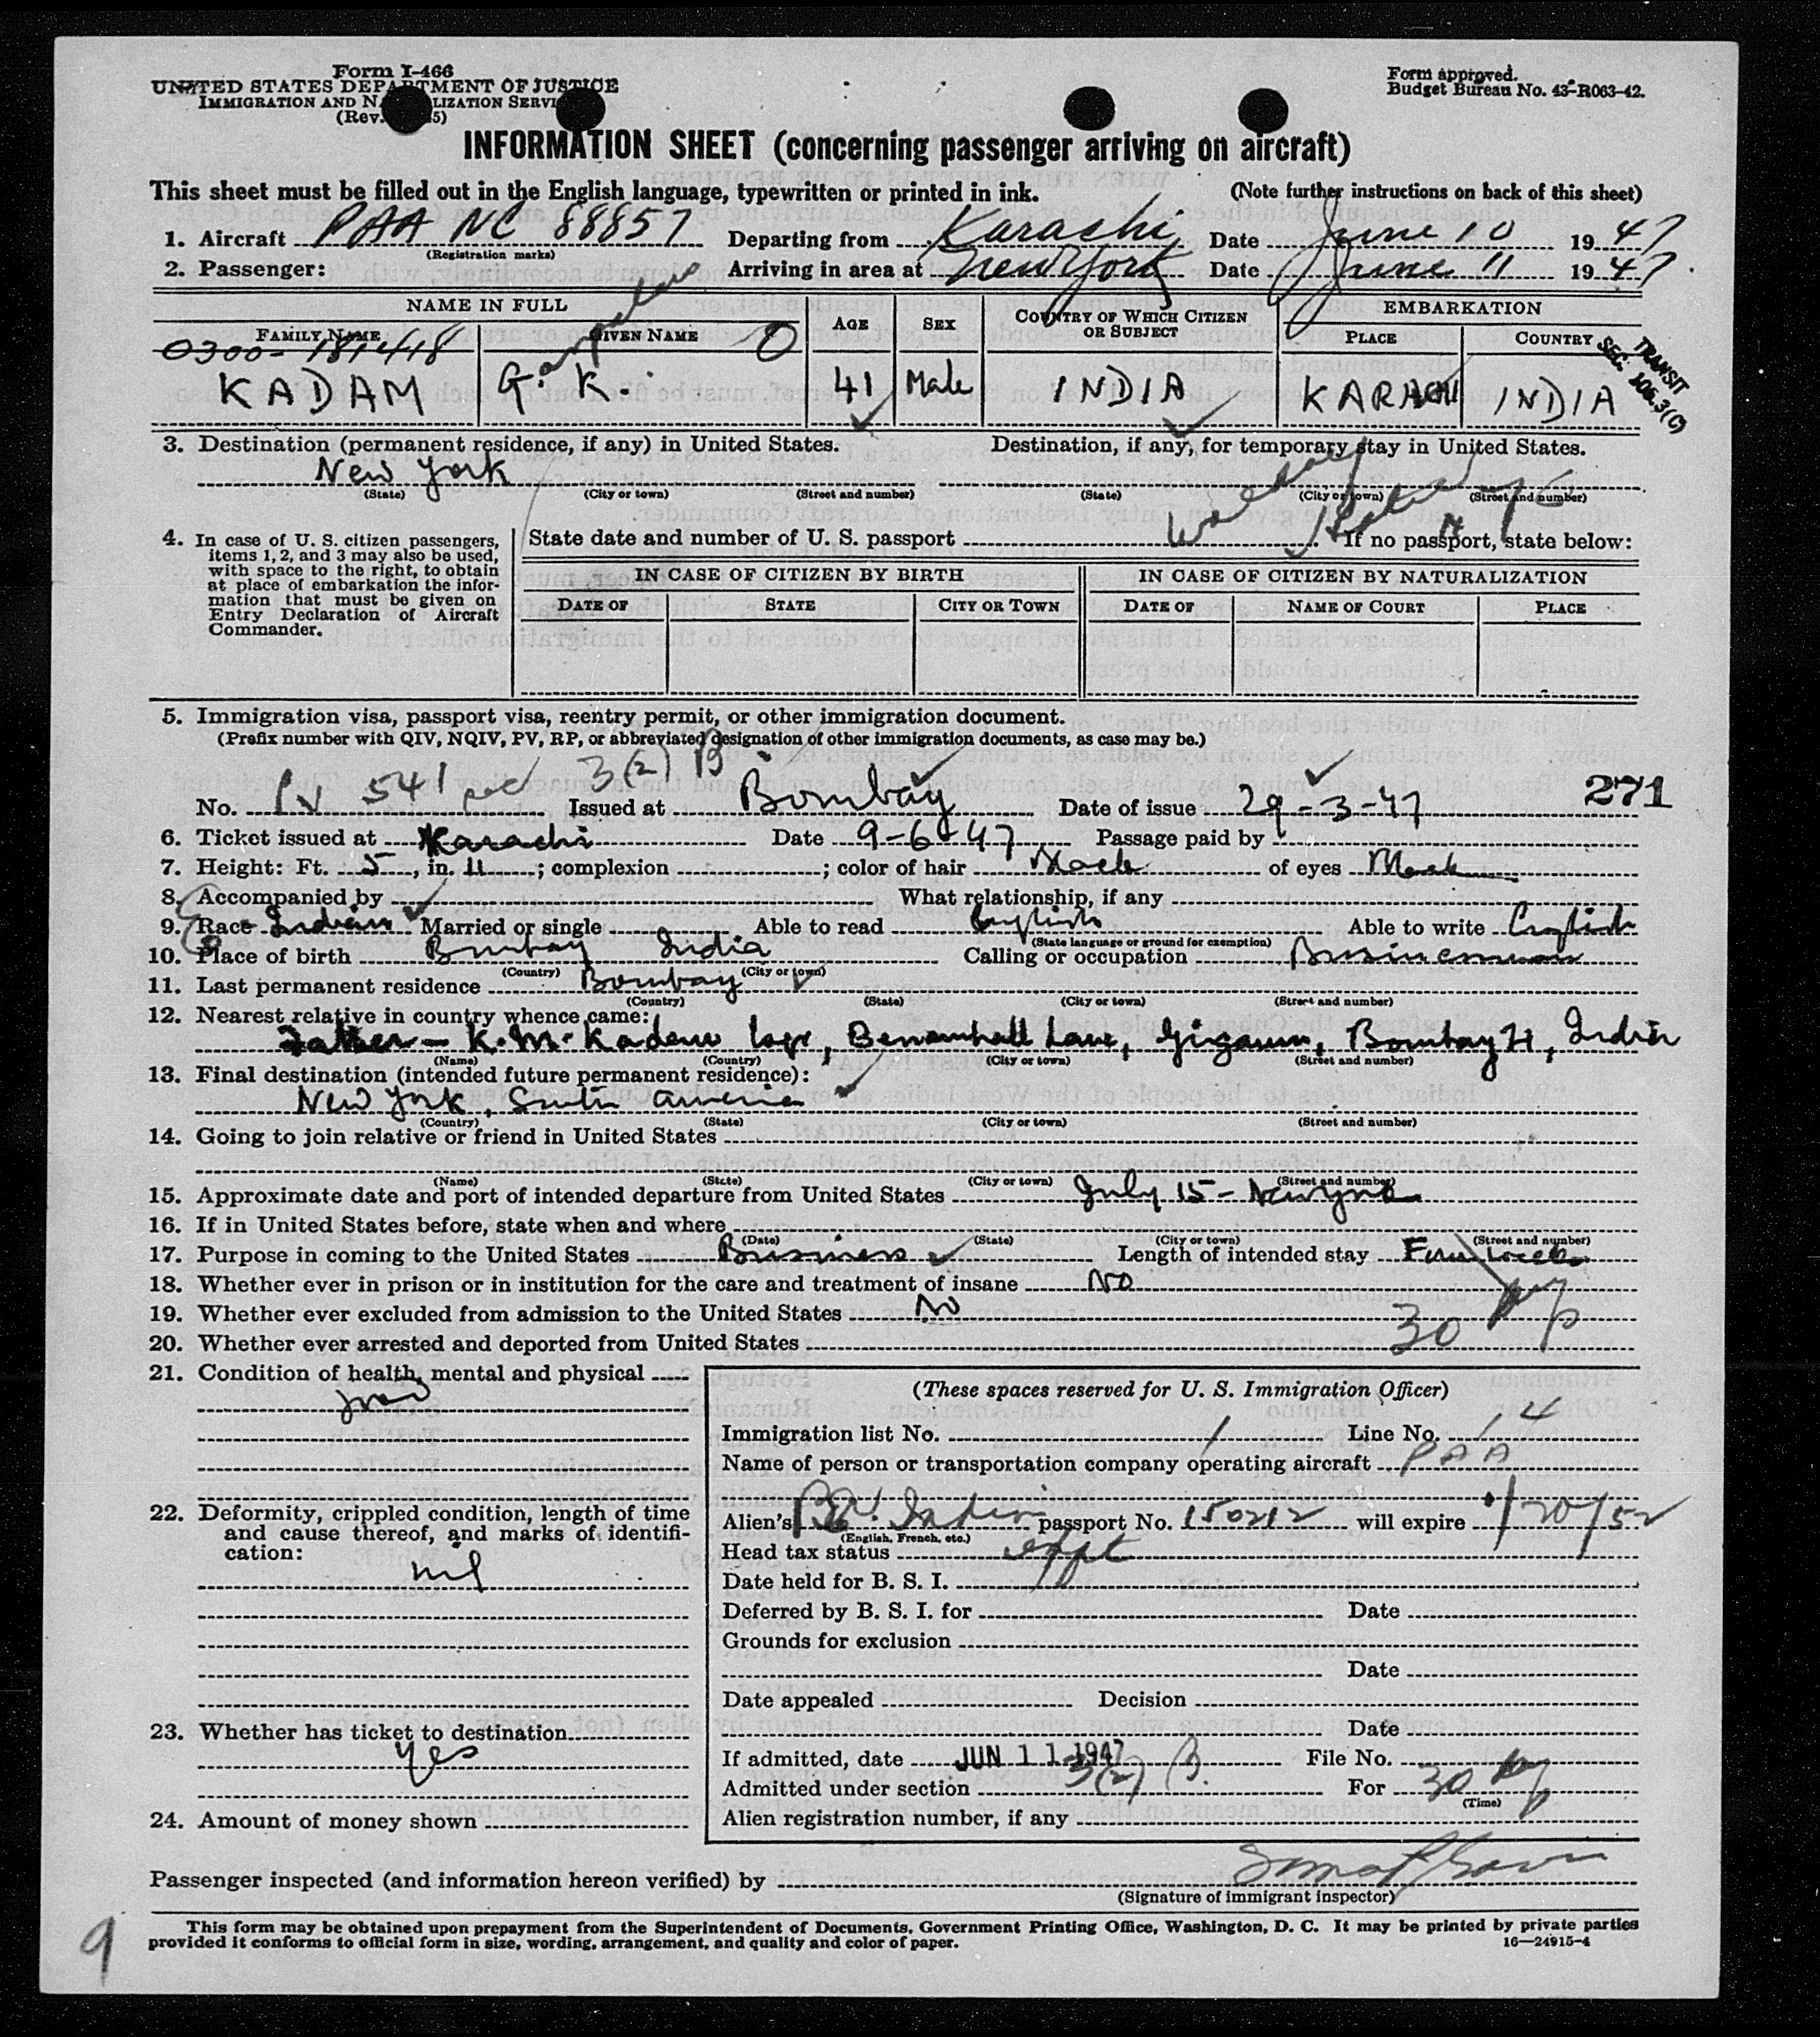 Form I-466
UNITED STATES DEPARTMENT OF JUSTICE
IMMIGRATION AND LIZATION
(Rev. 5)
Form approved.
Budget Bureau No. 43-R063-42.
INFORMATION SHEET (concerning passenger arriving on aircraft)
This sheet must be filled out in the English language, typewritten or printed in ink. (Note further instructions on back of this sheet)
1. Aircraft PAA NC 88857 Departing from Karachi Date June 10 1947
(Registration marks)
2. Passenger: Arriving in area at New York Date June 11 1947
NAME IN FULL AGE SEX COUNTRY OF WHICH CITIZEN OR SUBJECT EMBARKATION
FAMILY NAME GIVEN NAME PLACE COUNTRY
0300-
TRANSIT
SEC. 106.3(c)
KADAM G. K. 41 Male INDIA KARACHI INDIA
3. Destination (permanent residence, if any) in United States. Destination, if any, for temporary stay in United States.
New York
(State) (City or town) (Street and number) (State) (City or town) (Street and number)
4. In case of U. S. citizen passengers, items 1, 2, and 3 may also be used, with space to the right, to obtain at place of embarkation the information that must be given on Entry Declaration of Aircraft Commander.
State date and number of U. S. passport If no passport, state below:
IN CASE OF CITIZEN BY BIRTH IN CASE OF CITIZEN BY NATURALIZATION
DATE OF STATE CITY OR TOWN DATE OF NAME OF COURT PLACE
5. Immigration visa, passport visa, reentry permit, or other immigration document.
(Prefix number with QIV, NQIV, PV, RP, or abbreviated designation of other immigration documents, as case may be.)
3(2) B
271
No. PV 541 Issued at Bombay Date of issue 29-3-47
6. Ticket issued at Karachi Date 9-6-47 Passage paid by
7. Height: Ft. 5, in. 11; complexion ; color of hair Black of eyes Black
8. Accompanied by What relationship, if any
9. Race Indian Married or single Able to read English Able to write English
(State language or ground for exemption)
10. Place of birth Bombay India Calling or occupation Businessman
(Country) (City or town)
11. Last permanent residence Bombay
(Country) (State) (City or town) (Street and number)
12. Nearest relative in country whence came:
Father - K. M. Kadam Esqr, Lane, Bombay, India
(Name) (Country) (City or town) (Street and number)
13. Final destination (intended future permanent residence):
New York, South America
(Country) (State) (City or town) (Street and number)
14. Going to join relative or friend in United States
(Name) (State) (City or town) (Street and number)
15. Approximate date and port of intended departure from United States July 15 - New York
16. If in United States before, state when and where
(Date) (State) (City or town) (Street and number)
17. Purpose in coming to the United States Business Length of intended stay Four weeks
18. Whether ever in prison or in institution for the care and treatment of insane No
19. Whether ever excluded from admission to the United States No
30
20. Whether ever arrested and deported from United States
21. Condition of health, mental and physical
good
22. Deformity, crippled condition, length of time and cause thereof, and marks of identification:
nil
23. Whether has ticket to destination
Yes
24. Amount of money shown
(These spaces reserved for U. S. Immigration Officer)
Immigration list No. 1 Line No. 14
Name of person or transportation company operating aircraft PAA
Alien's Br. India passport No. 150212 will expire 1/20/52
(English, French, etc.)
Head tax status
Date held for B. S. I.
Deferred by B. S. I. for Date
Grounds for exclusion
Date
Date appealed Decision
Date
If admitted, date JUN 11 1947 File No.
Admitted under section 3(2) B. For 30
(Time)
Alien registration number, if any
Passenger inspected (and information hereon verified) by
(Signature of immigrant inspector)
This form may be obtained upon prepayment from the Superintendent of Documents, Government Printing Office, Washington, D. C. It may be printed by private parties
provided it conforms to official form in size, wording, arrangement, and quality and color of paper.
16—24915-4
9